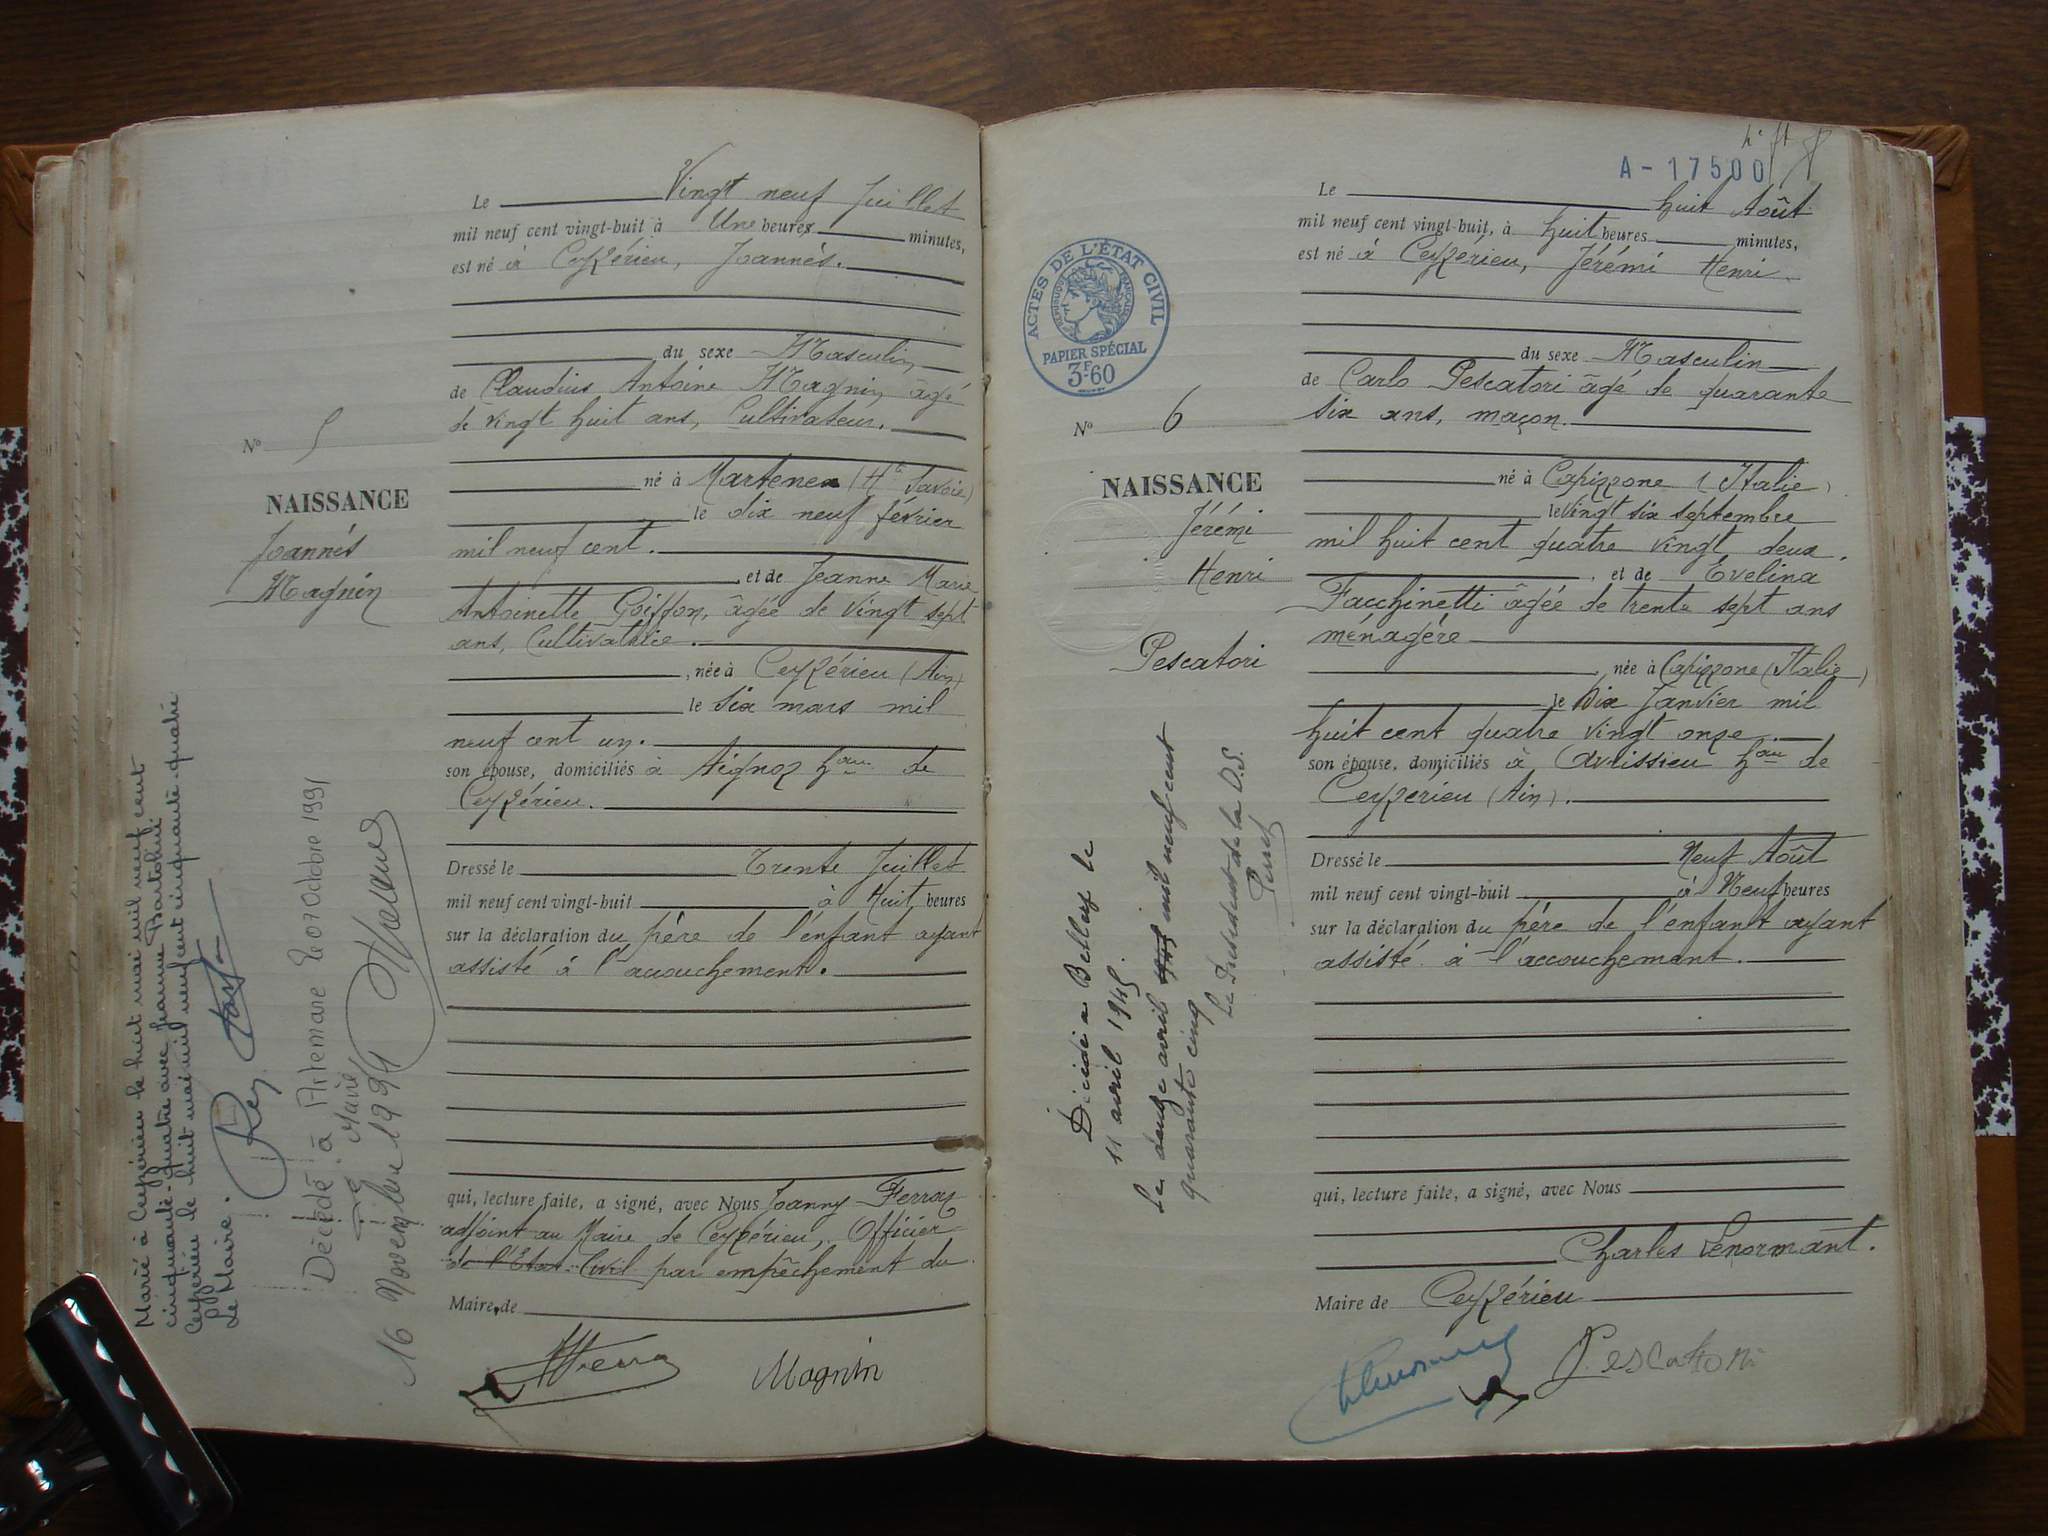 Le Vingt neuf Juillet
mil neuf cent vingt-huit à Une heures minutes,
est né à Ceyzérieu, Joannés.
du sexe Masculin,
de Claudius Antoine Magnin, âgé
de vingt huit ans, Cultivateur.
né à (Hte Savoie)
le dix neuf février
mil neuf cent.
et de Jeanne Marie
Antoinette Goiffon, âgée de vingt sept
ans, Cultivatrice.
, née à Ceyzérieu (Ain)
le six mars mil
neuf cent un.
son épouse, domiciliés à Aignoz hau de
Ceyzérieu.
Dressé le Trente Juillet
mil neuf cent vingt-huit à Huit heures
sur la déclaration du père de l'enfant ayant
assisté à l'accouchement.
qui, lecture faite, a signé, avec Nous Joanny
adjoint au Maire de Ceyzérieu, Officier
de l'Etat-Civil par empêchement du
Maire, de
Magnin
No 5
NAISSANCE
Joannés
Magnin
Marié à Ceyzérieu le huit mai mil neuf cent
cinquante-quatre avec Jeanne Bartolini
Ceyzérieu le huit mai mil neuf cent cinquante-quatre
Le Maire.
Décédé à Artemare le 07 Octobre 1991
Le Maire
16 Novembre 1991
A-17500
Le huit Août
mil neuf cent vingt-huit, à huit heures minutes,
est né à Ceyzerieu, Jérémi Henri
du sexe Masculin
de Carlo Pescatori âgé de quarante
six ans, maçon.
né à Capizzone (Italie)
le vingt six septembre
mil huit cent quatre vingt deux.
, et de Evelina
Facchinetti âgée de trente sept ans
ménagère
, née à Capizzone (Italie)
le Dix Janvier mil
huit cent quatre vingt onze.
son épouse, domiciliés à Avrissieu hau de
Ceyzerieu (Ain).
Dressé le Neuf Août
mil neuf cent vingt-huit à Neuf heures
sur la déclaration du père de l'enfant ayant
assisté à l'accouchement.
qui, lecture faite, a signé, avec Nous
Charles Lenormant.
Maire de Ceyzérieu
Pescatori
ACTES DE L'ÉTAT CIVIL
RÉPUBLIQUE FRANÇAISE
PAPIER SPÉCIAL
3F-60
No 6
NAISSANCE
Jérémi
Henri
Pescatori
Décédé à Belley le
11 avril 1945.
Le douze avril mil neuf cent
quarante cinq
Le Président de la D.S.